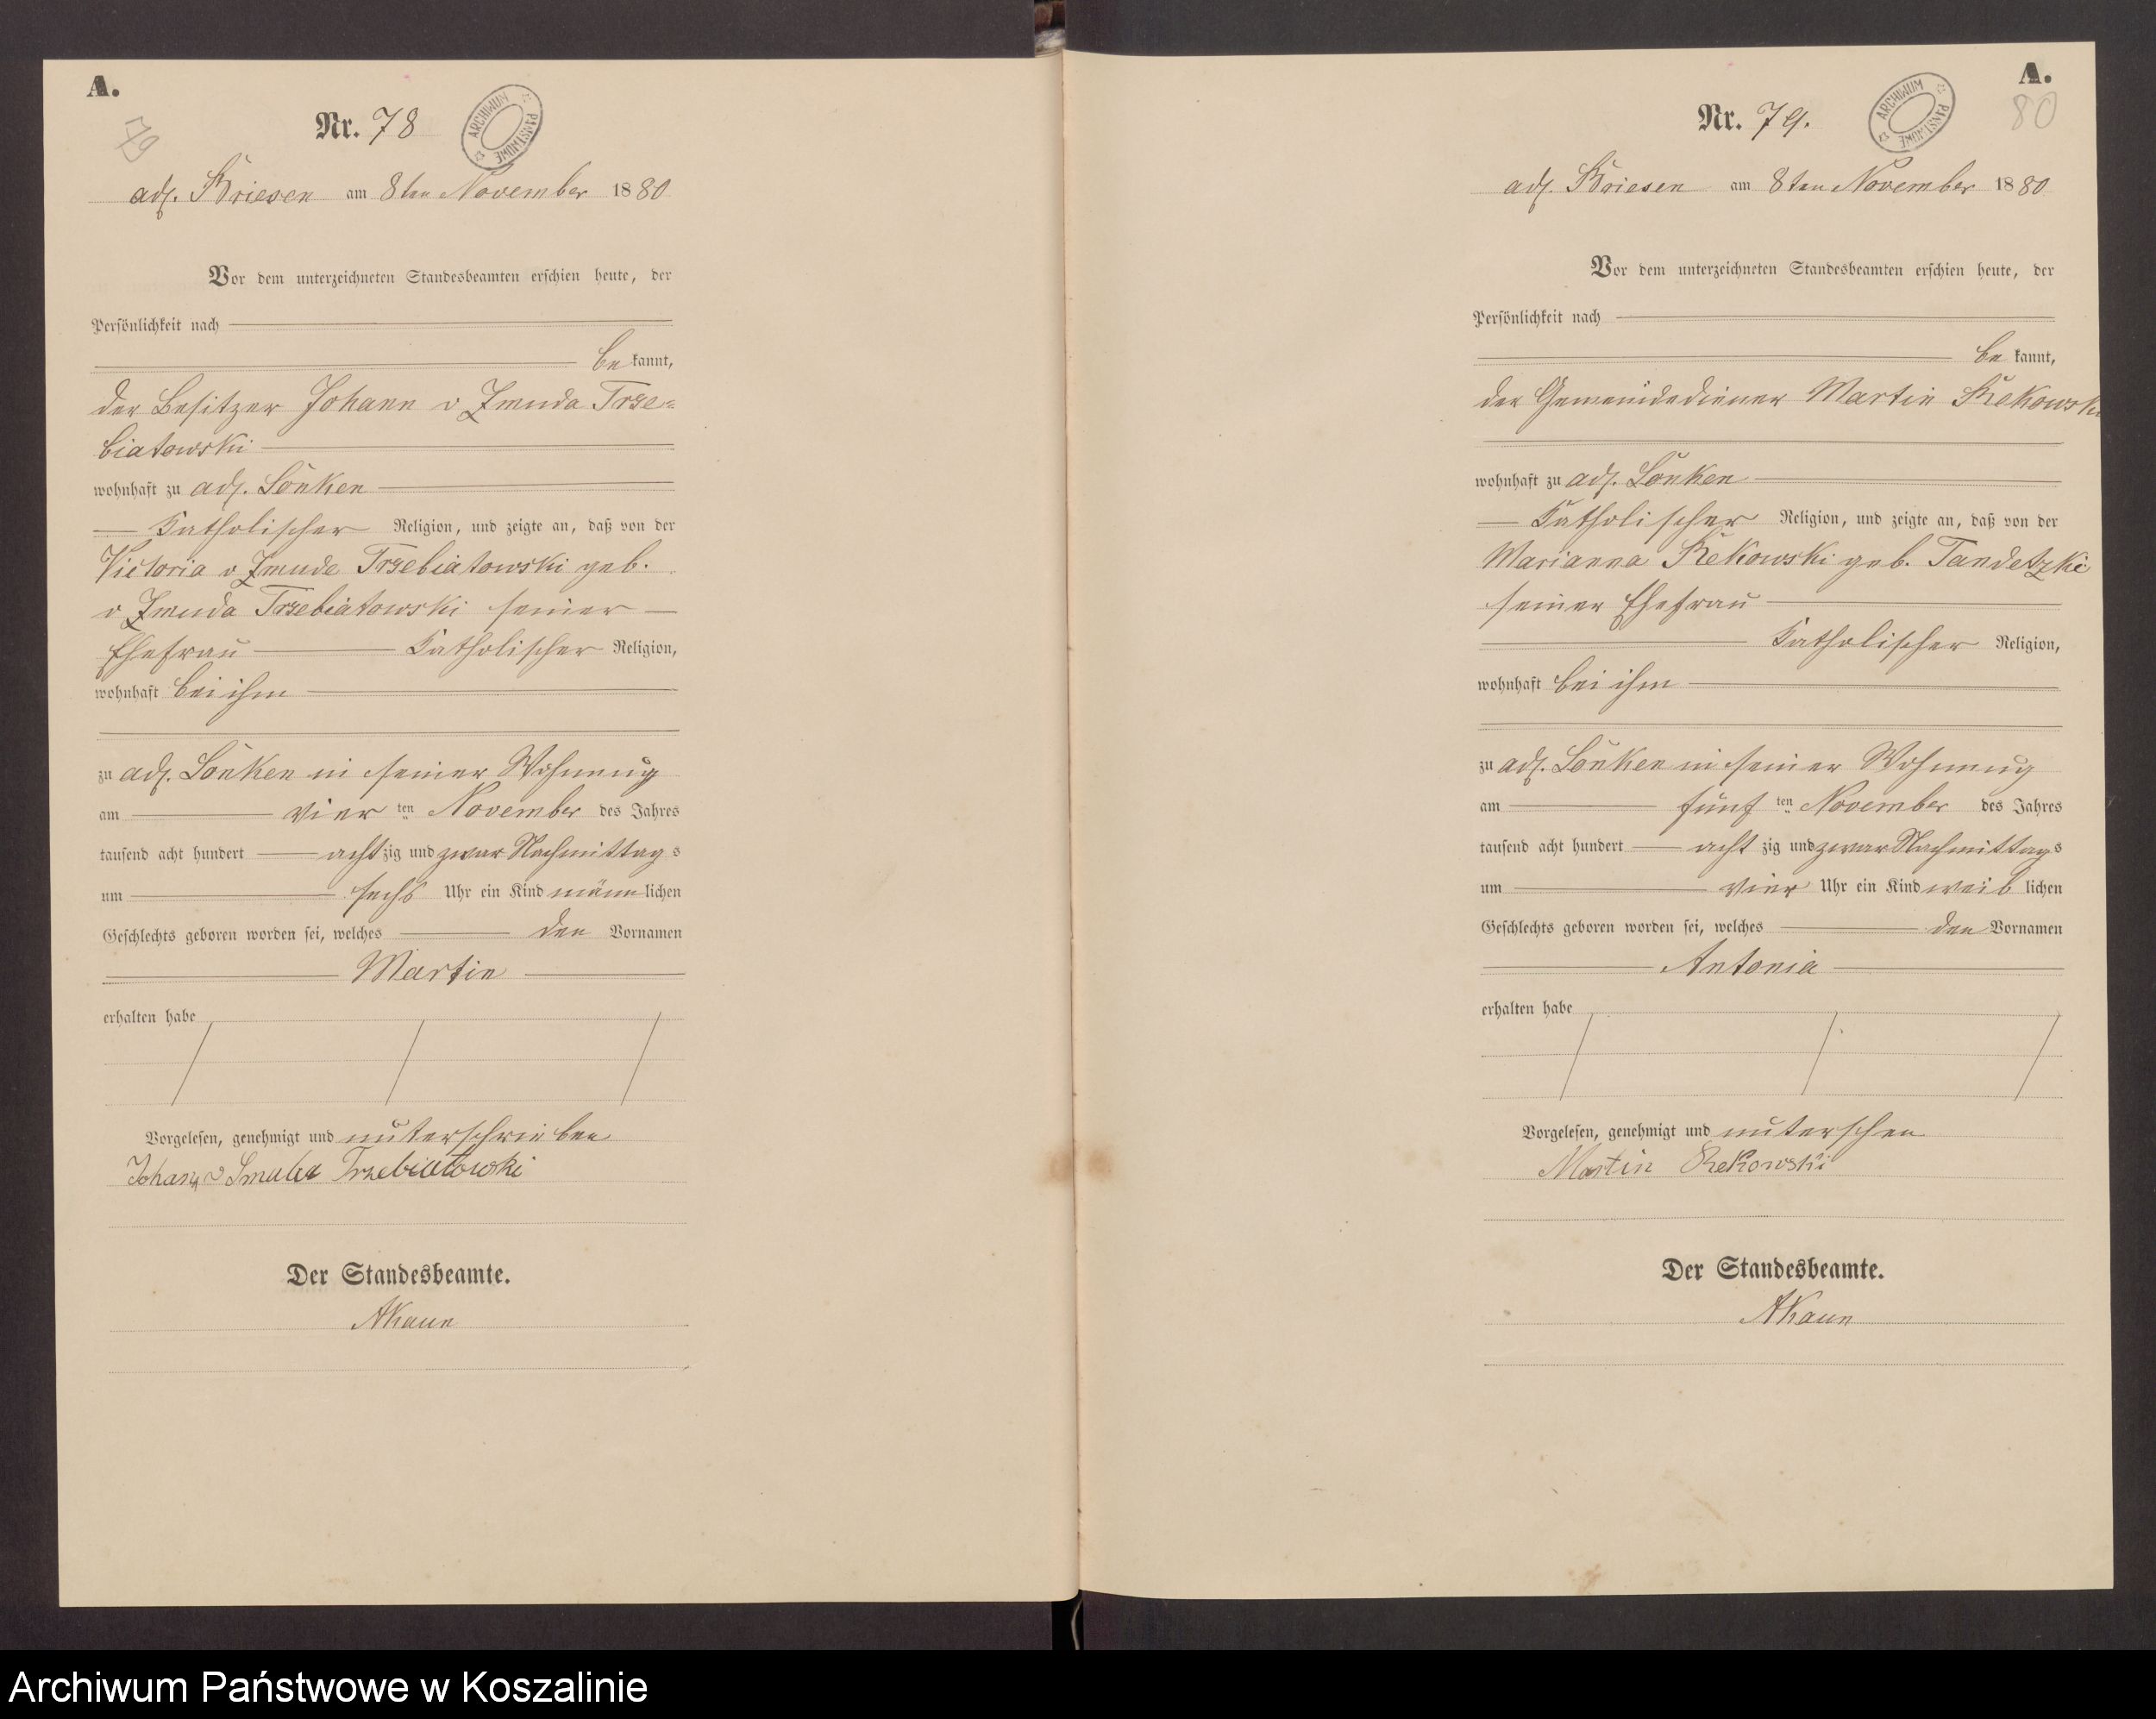 A.
79
Nr. 78
ARCHIWUM PAŃSTWOWE
adl. Briesen am 8ten November 1880
Vor dem unterzeichneten Standesbeamten erschien heute, der
Persönlichkeit nach
be kannt,
der Besitzer Johann v Zmuda Trze=
biatowski
wohnhaft zu adl. Lonken
Katholischer Religion, und zeigte an, daß von der
Victoria v Zmuda Trzebiatowski geb.
v Zmuda Trzebiatowski seiner
Ehefrau Katholischer Religion,
wohnhaft bei ihm
zu adl. Lonken in seiner Wohnung
am vier ten November des Jahres
tausend acht hundert acht zig und zwar Nachmittag s
um sechs Uhr ein Kind männ lichen
Geschlechts geboren worden sei, welches den Vornamen
Martin
erhalten habe
Vorgelesen, genehmigt und unterschrieben
Johann v Smuda Trzebiatowski
Der Standesbeamte.
AKaun
A.
80
Nr. 79.
ARCHIWUM PAŃSTWOWE
adl. Briesen am 8ten November 1880
Vor dem unterzeichneten Standesbeamten erschien heute, der
Persönlichkeit nach
be kannt,
der Gemeindediener Martin Rekowski
wohnhaft zu adl. Lonken
Katholischer Religion, und zeigte an, daß von der
Marianna Rekowski geb. Tandetzki
seiner Ehefrau
Katholischer Religion,
wohnhaft bei ihm
zu adl. Lonken in seiner Wohnung
am fünf ten November des Jahres
tausend acht hundert acht zig und zwar Nachmittag s
um vier Uhr ein Kind weib lichen
Geschlechts geboren worden sei, welches den Vornamen
Antonia
erhalten habe
Vorgelesen, genehmigt und unterschen
Martin Rekowski
Der Standesbeamte.
AKaun
Archiwum Państwowe w Koszalinie